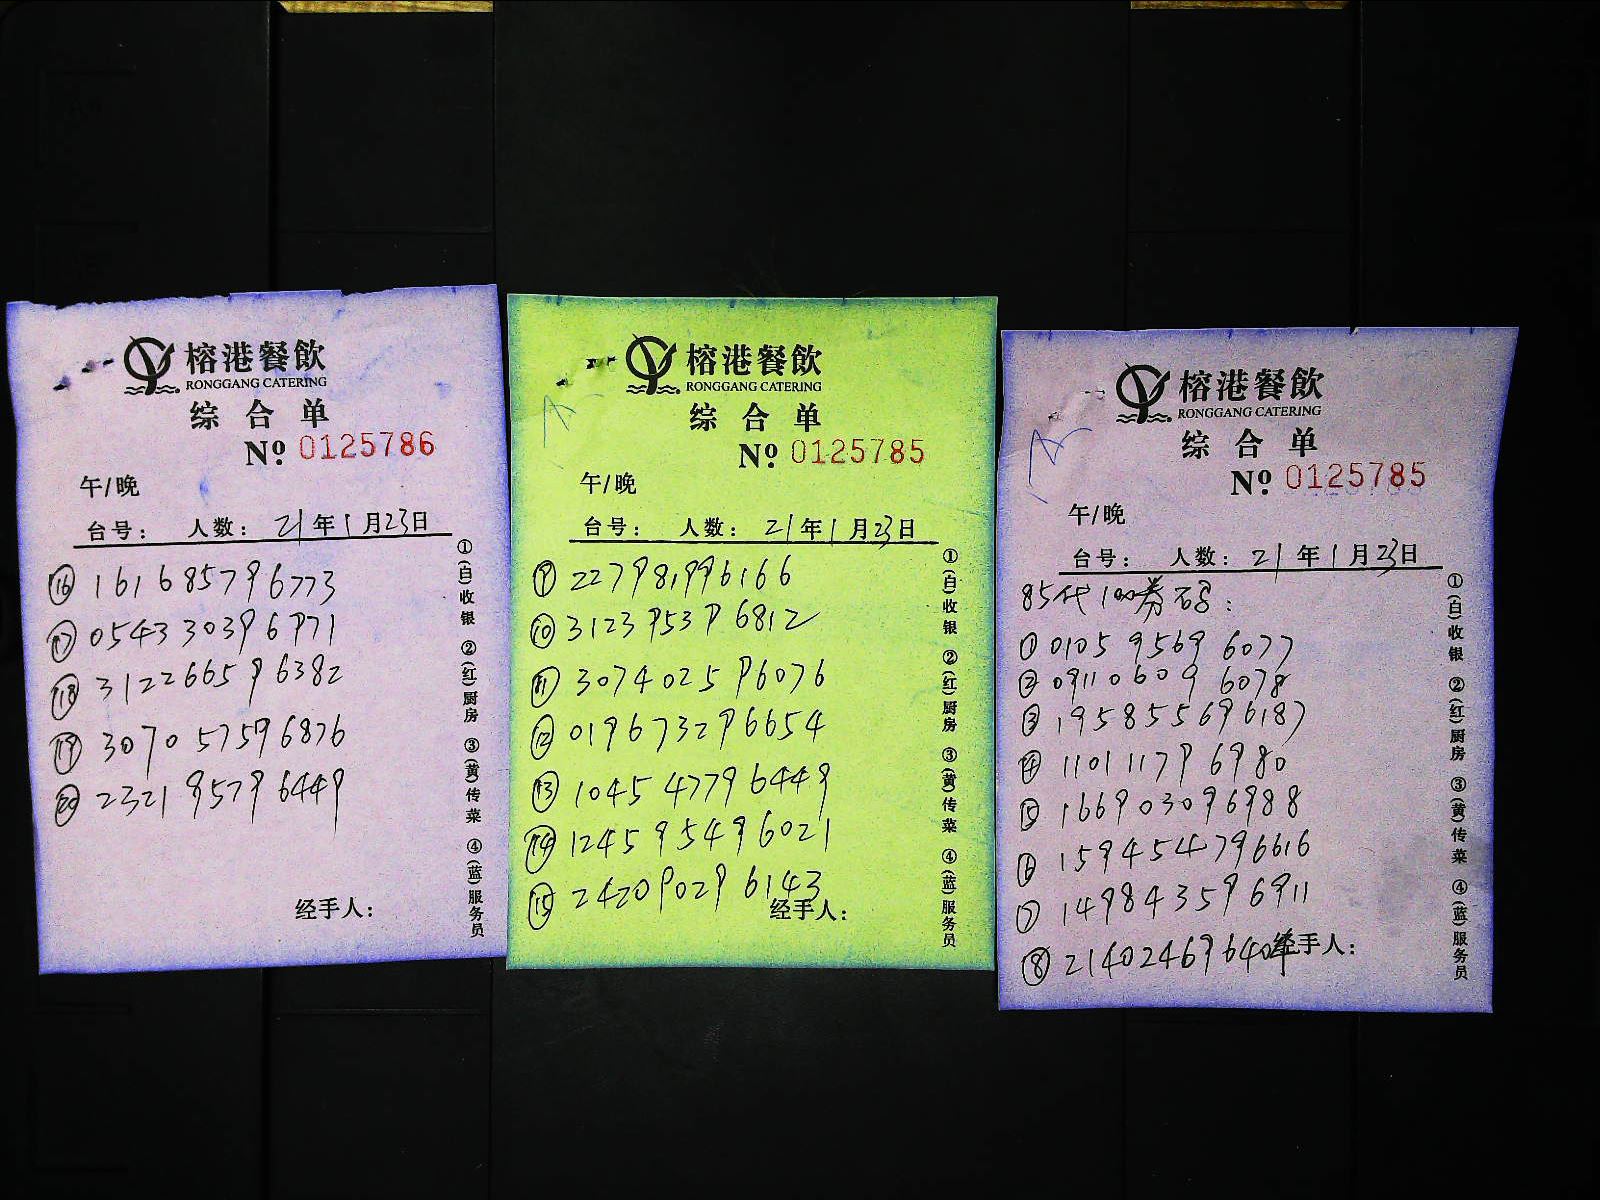 榕港餐飲
RONGGANG CATERING
综合单
Nº 0125786
午/晚
台号： 人数： 21年1月23日
⑯ 161685796773
⑰ 054330396971
⑱ 312266596382
⑲ 307057596876
⑳ 232195796449
经手人：
①(白)收银 ②(红)厨房 ③(黄)传菜 ④(蓝)服务员
榕港餐飲
RONGGANG CATERING
综合单
Nº 0125785
午/晚
台号： 人数： 21年1月23日
⑨ 227981996166
⑩ 312395396812
⑪ 307402596076
⑫ 019673296654
⑬ 104547796449
⑭ 124595496021
⑮ 242090296143
经手人：
①(白)收银 ②(红)厨房 ③(黄)传菜 ④(蓝)服务员
榕港餐飲
RONGGANG CATERING
综合单
Nº 0125785
午/晚
台号： 人数： 21年1月23日
85代100券码：
① 010595696077
② 091106096078
③ 195855696187
④ 110111796980
⑤ 166903096988
⑥ 159454796616
⑦ 149843596911
⑧
经手人：
①(白)收银 ②(红)厨房 ③(黄)传菜 ④(蓝)服务员